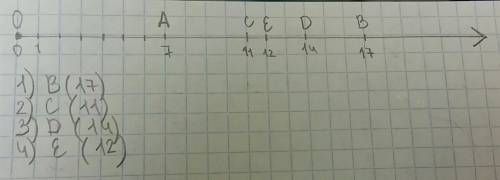 O A C E D B
0 1 7 11 12 14 17
1) B(17)
2) C (11)
3) D (14)
4) E (12)